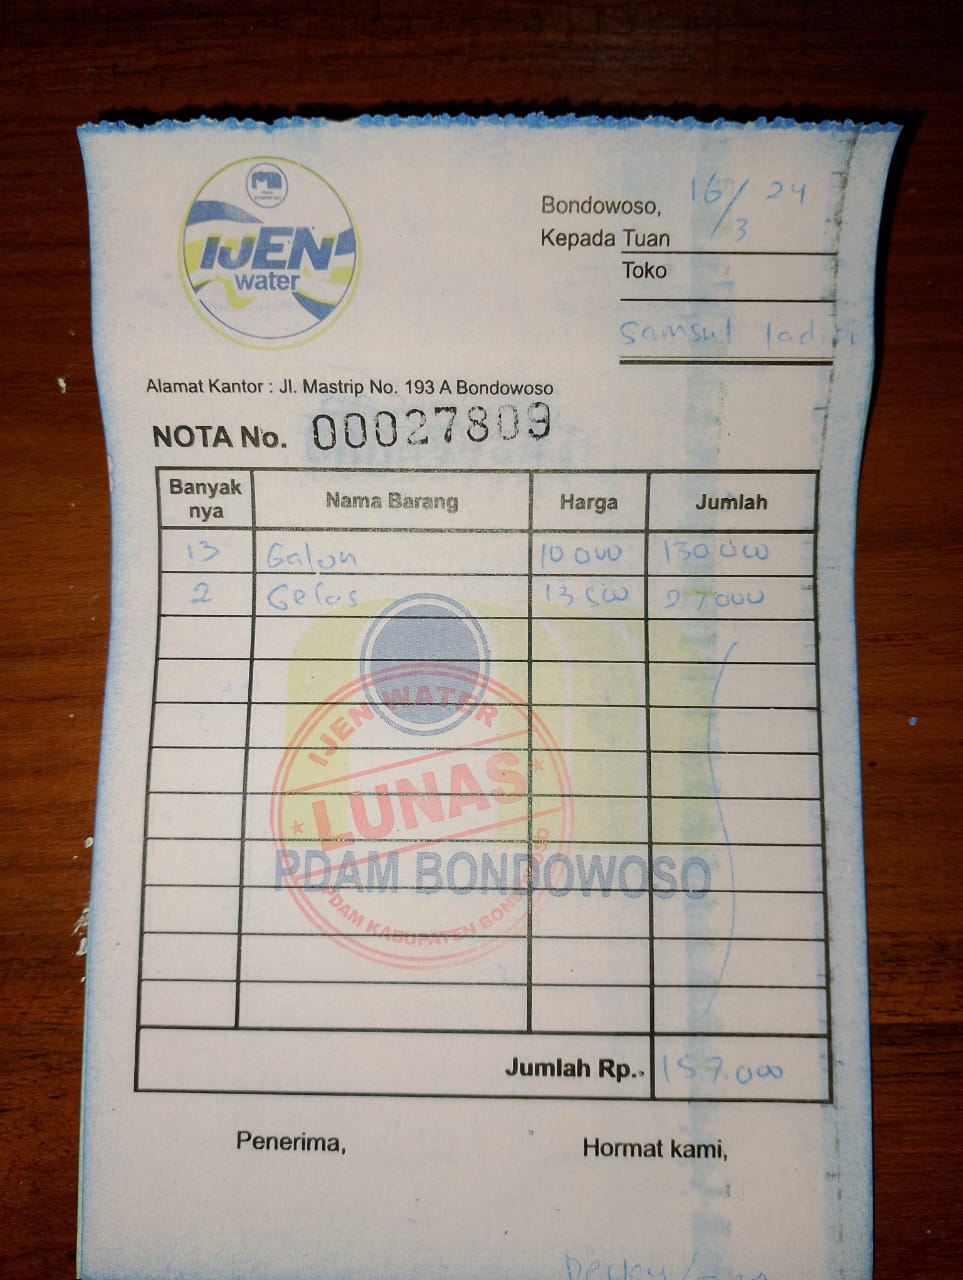 IJEN
water
Bondowoso, 16/3 24
Kepada Tuan
Toko
Samsul
Alamat Kantor : Jl. Mastrip No. 193 A Bondowoso
NOTA No. 00027809
Banyak nya Nama Barang Harga Jumlah
13 Galon 10 000 130 000
2 Gelas 13 500 27 000
IJEN WATER
LUNAS
PDAM BONDOWOSO
PDAM KABUPATEN BONDOWOSO
Jumlah Rp. 157.000
Penerima, Hormat kami,